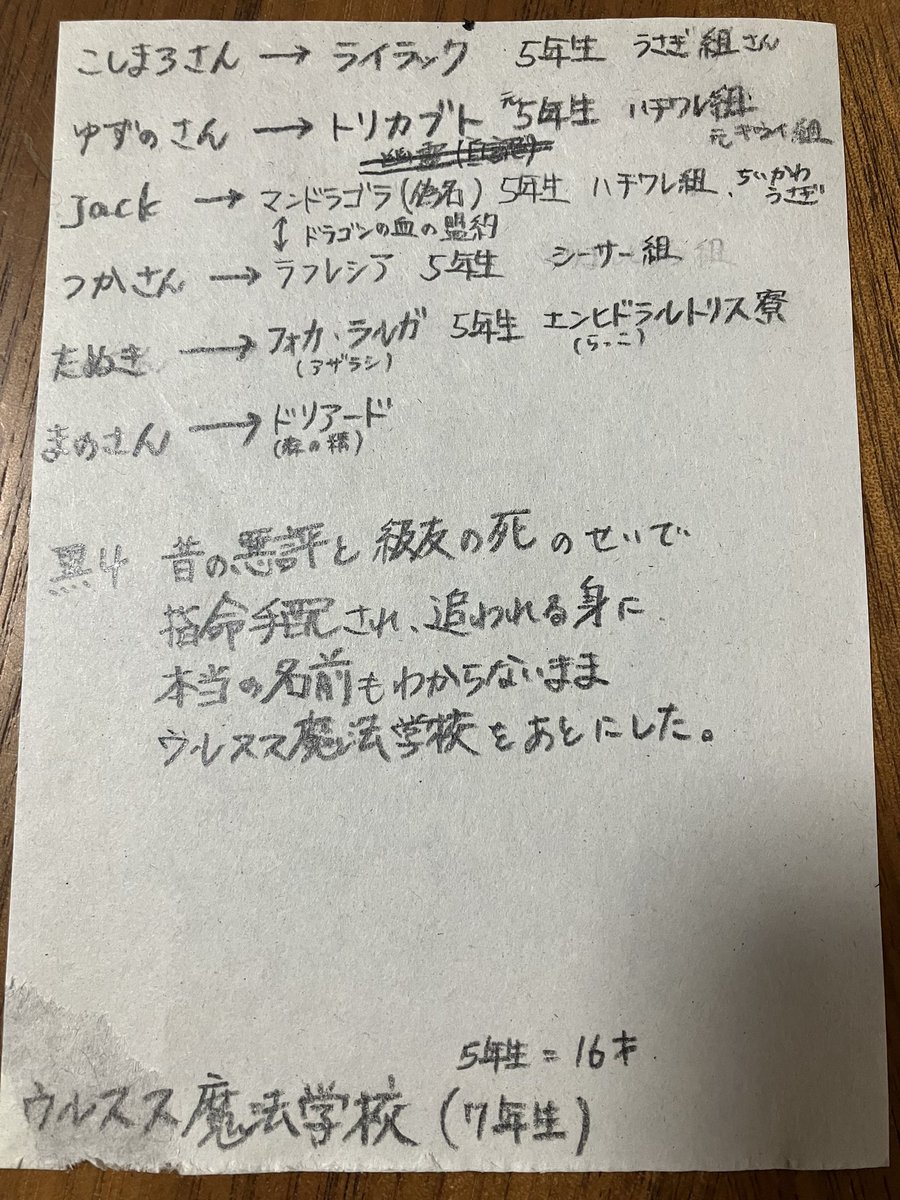 こしまろさん → ライラック 5年生 うさぎ組さん
ゆずのさん → トリカブト 元5年生 ハチワレ組
元キウイ組
幽霊(自認)
Jack → マンドラゴラ(偽名) 5年生 ハチワレ組、ちいかわ
うさぎ
↕ ドラゴンの血の盟約
つかさん → ラフレシア 5年生 シーサー組
たぬき → フォカ・ラルガ 5年生 エンヒドラルトリス寮
(アザラシ) (らっこ)
まのさん → ドリアード
(森の精)
黒4 昔の悪評と級友の死のせいで
指命手配され、追われる身に
本当の名前もわからないまま
ウルスス魔法学校をあとにした。
5年生=16才
ウルスス魔法学校(7年生)